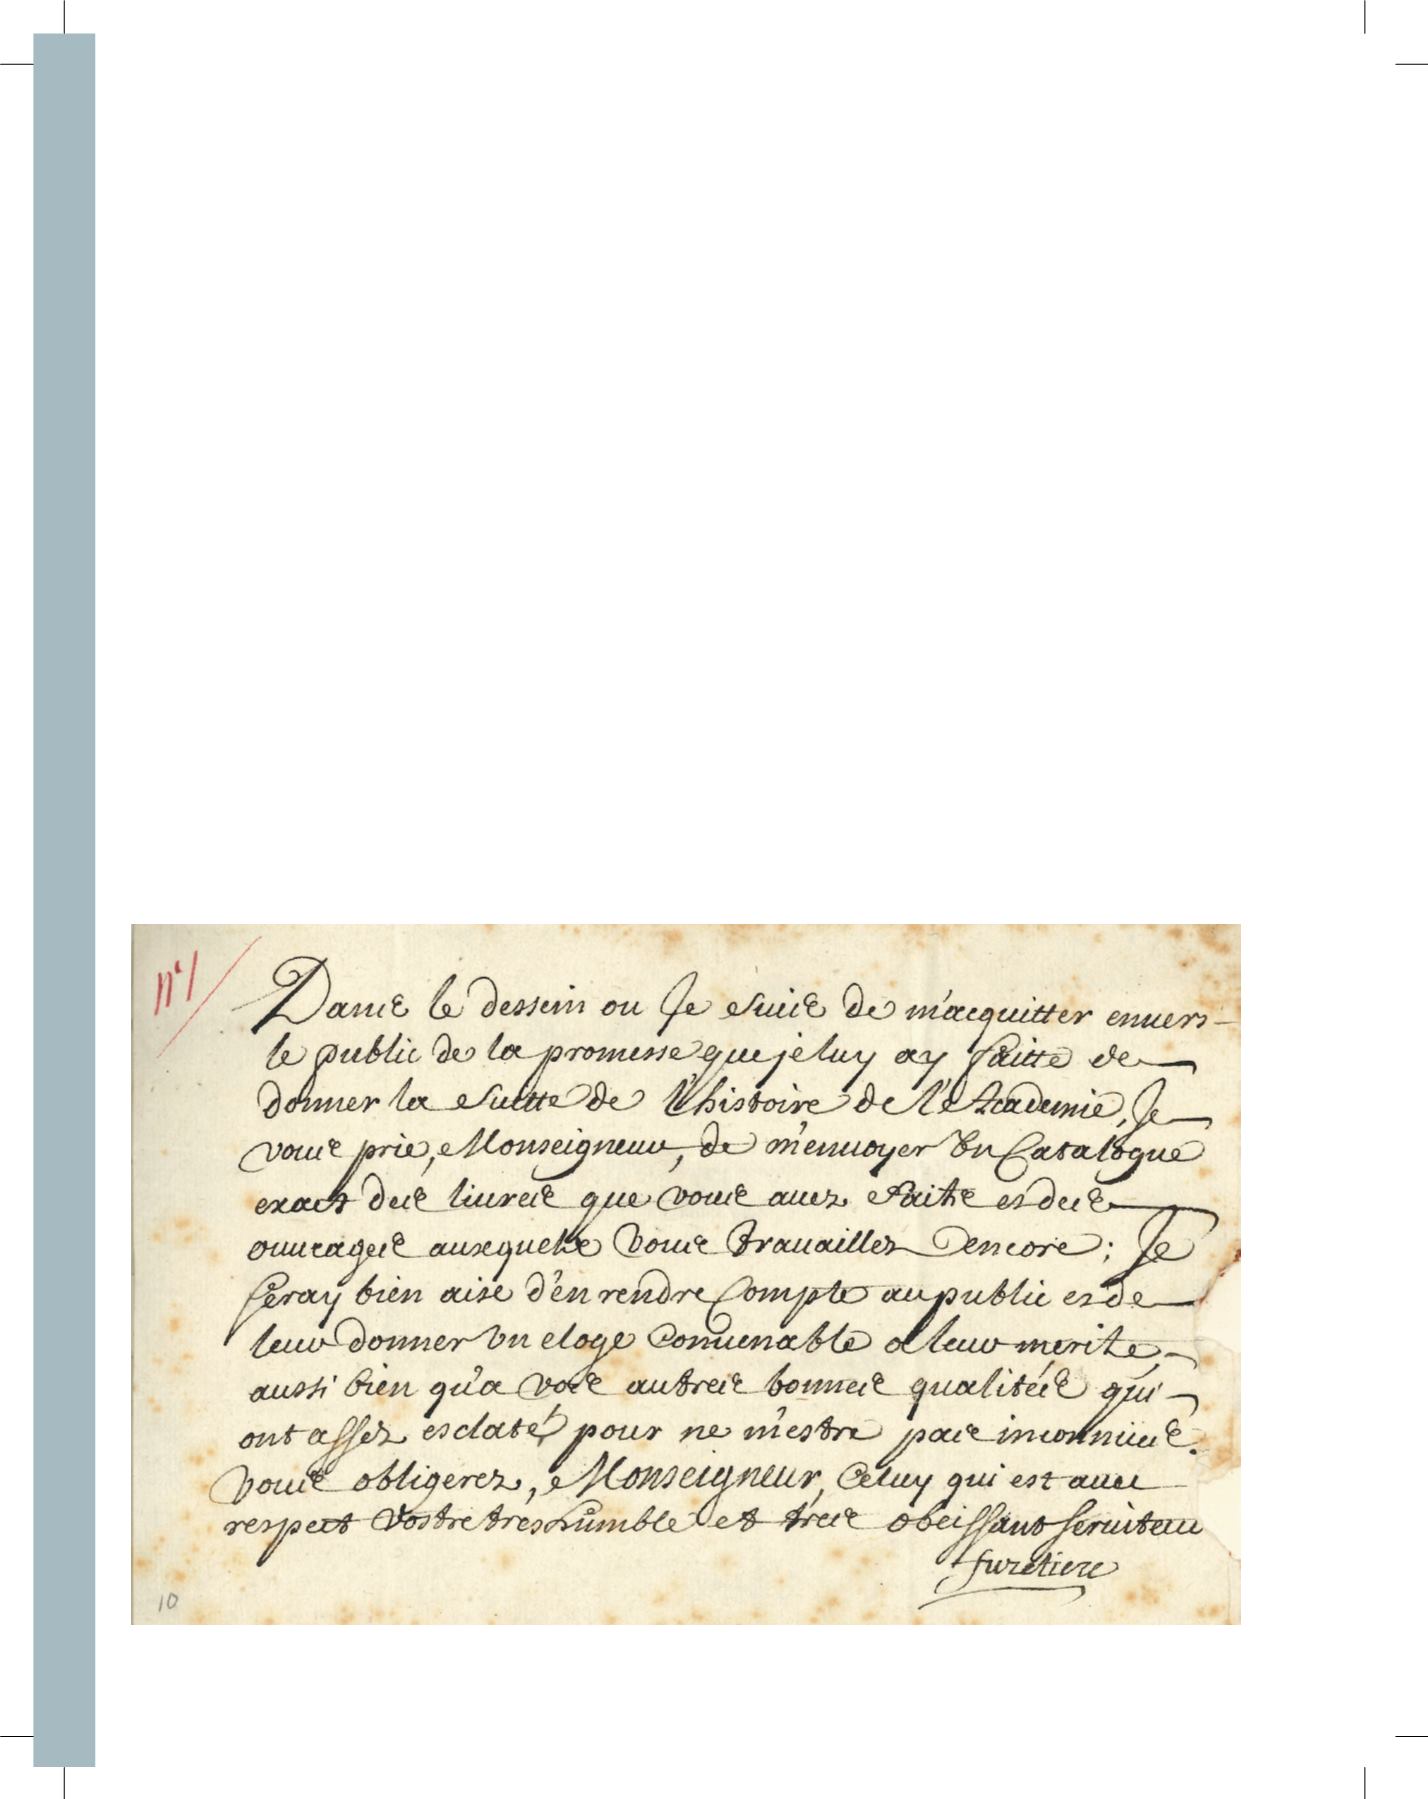 n°1
Dans le dessein ou Je suis de m'acquitter envers
le public de la promesse que je luy ay faitte de
donner la suitte de l'histoire de l'Academie, Je
vous prie, Monseigneur, de m'enuoyer Vn Catalogue
exact des liures que vous auez faits et des
ouurages ausquels Vous trauaillez encore ; Je
seray bien aise d'en rendre Compte au public et de
leur donner Vn eloge Conuenable a leur merite,
aussi bien qu'a vos autres bonnes qualités qui
ont assez esclaté pour ne m'estre pas inconnues.
Vous obligerez, Monseigneur, Celuy qui est auec
respect Vostre tres humble et tres obeissant seruiteur
furetiere
10